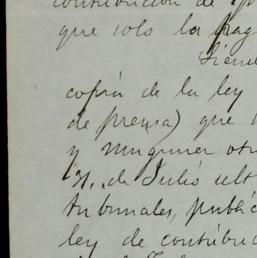 contribucion de
que solo la pag
copia de la ley
de prensa) que
y ninguna otr
de Julio ult
tribunales, public
ley de contribu